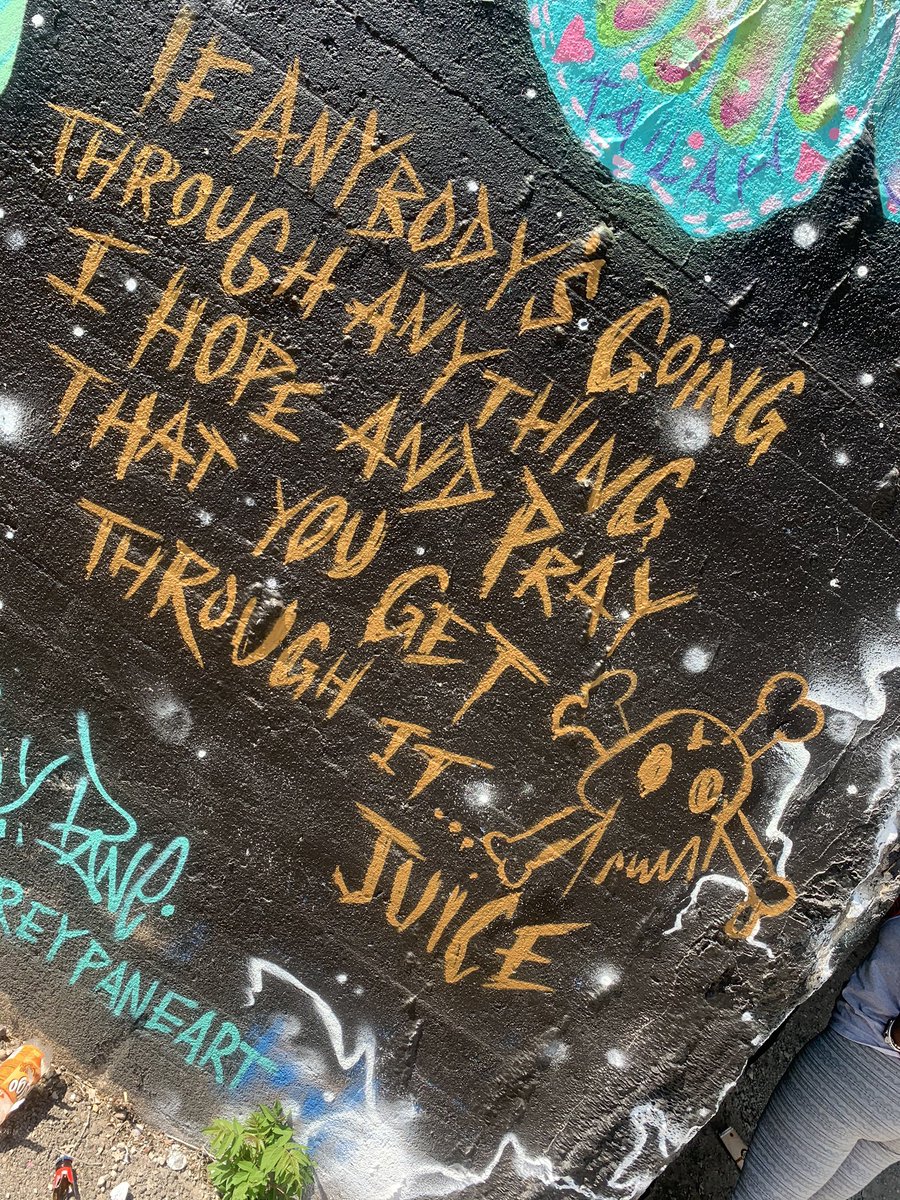 IF ANYBODY'S GOING
THROUGH ANYTHING
I HOPE AND PRAY
THAT YOU GET
THROUGH IT...
JUICE
PANE.
REYPANEART